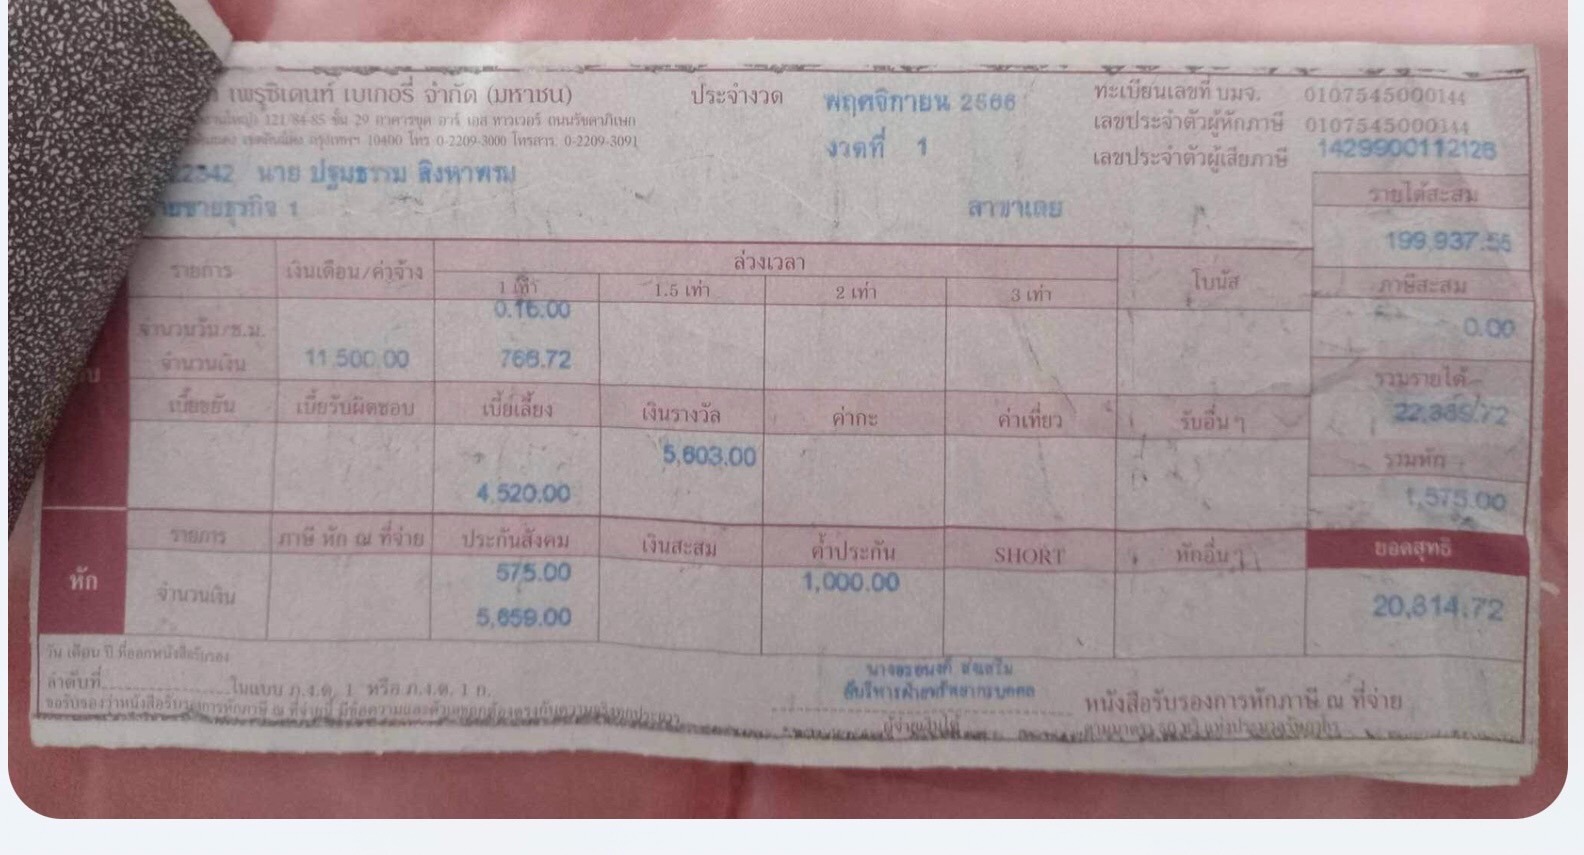 เพรซิเดนท์ เบเกอรี่ จำกัด (มหาชน) ประจำงวด พฤศจิกายน 2566 ทะเบียนเลขที่ บมจ. 0107545000144
121/84-85 ชั้น 29 อาคารชุด อาร์ เอส ทาวเวอร์ ถนนรัชดาภิเษก เลขประจำตัวผู้หักภาษี 0107545000144
กรุงเทพฯ 10400 โทร 0-2209-3000 โทรสาร. 0-2209-3091 งวดที่ 1 เลขประจำตัวผู้เสียภาษี 1429900112126
22342 นาย ปฐมธรรม สิงหาพรม
ขายธุรกิจ 1 สาขาเลย รายได้สะสม
199,937.55
รายการ เงินเดือน/ค่าจ้าง ล่วงเวลา โบนัส ภาษีสะสม
1 เท่า 1.5 เท่า 2 เท่า 3 เท่า
จำนวนวัน/ช.ม. 0.16.00 0.00
จำนวนเงิน 11,500.00 766.72
รวมรายได้
เบี้ยขยัน เบี้ยรับผิดชอบ เบี้ยเลี้ยง เงินรางวัล ค่ากะ ค่าเที่ยว รับอื่นๆ 22,389.72
5,603.00 รวมหัก
4,520.00 1,575.00
หัก รายการ ภาษี หัก ณ ที่จ่าย ประกันสังคม เงินสะสม ค้ำประกัน SHORT หักอื่นๆ ยอดสุทธิ
จำนวนเงิน 575.00 1,000.00 20,814.72
5,659.00
วัน เดือน ปี ที่ออกหนังสือรับรอง
ลำดับที่ ในแบบ ภ.ง.ด. 1 หรือ ภ.ง.ด. 1 ก. ผู้บริหารฝ่ายทรัพยากรบุคคล หนังสือรับรองการหักภาษี ณ ที่จ่าย
ขอรับรองว่าหนังสือรับรองการหักภาษี ณ ที่จ่ายนี้ มีข้อความและตัวเลขถูกต้องตรงกับความจริงทุกประการ ผู้จ่ายเงินได้ ตามมาตรา 50 ทวิ แห่งประมวลรัษฎากร